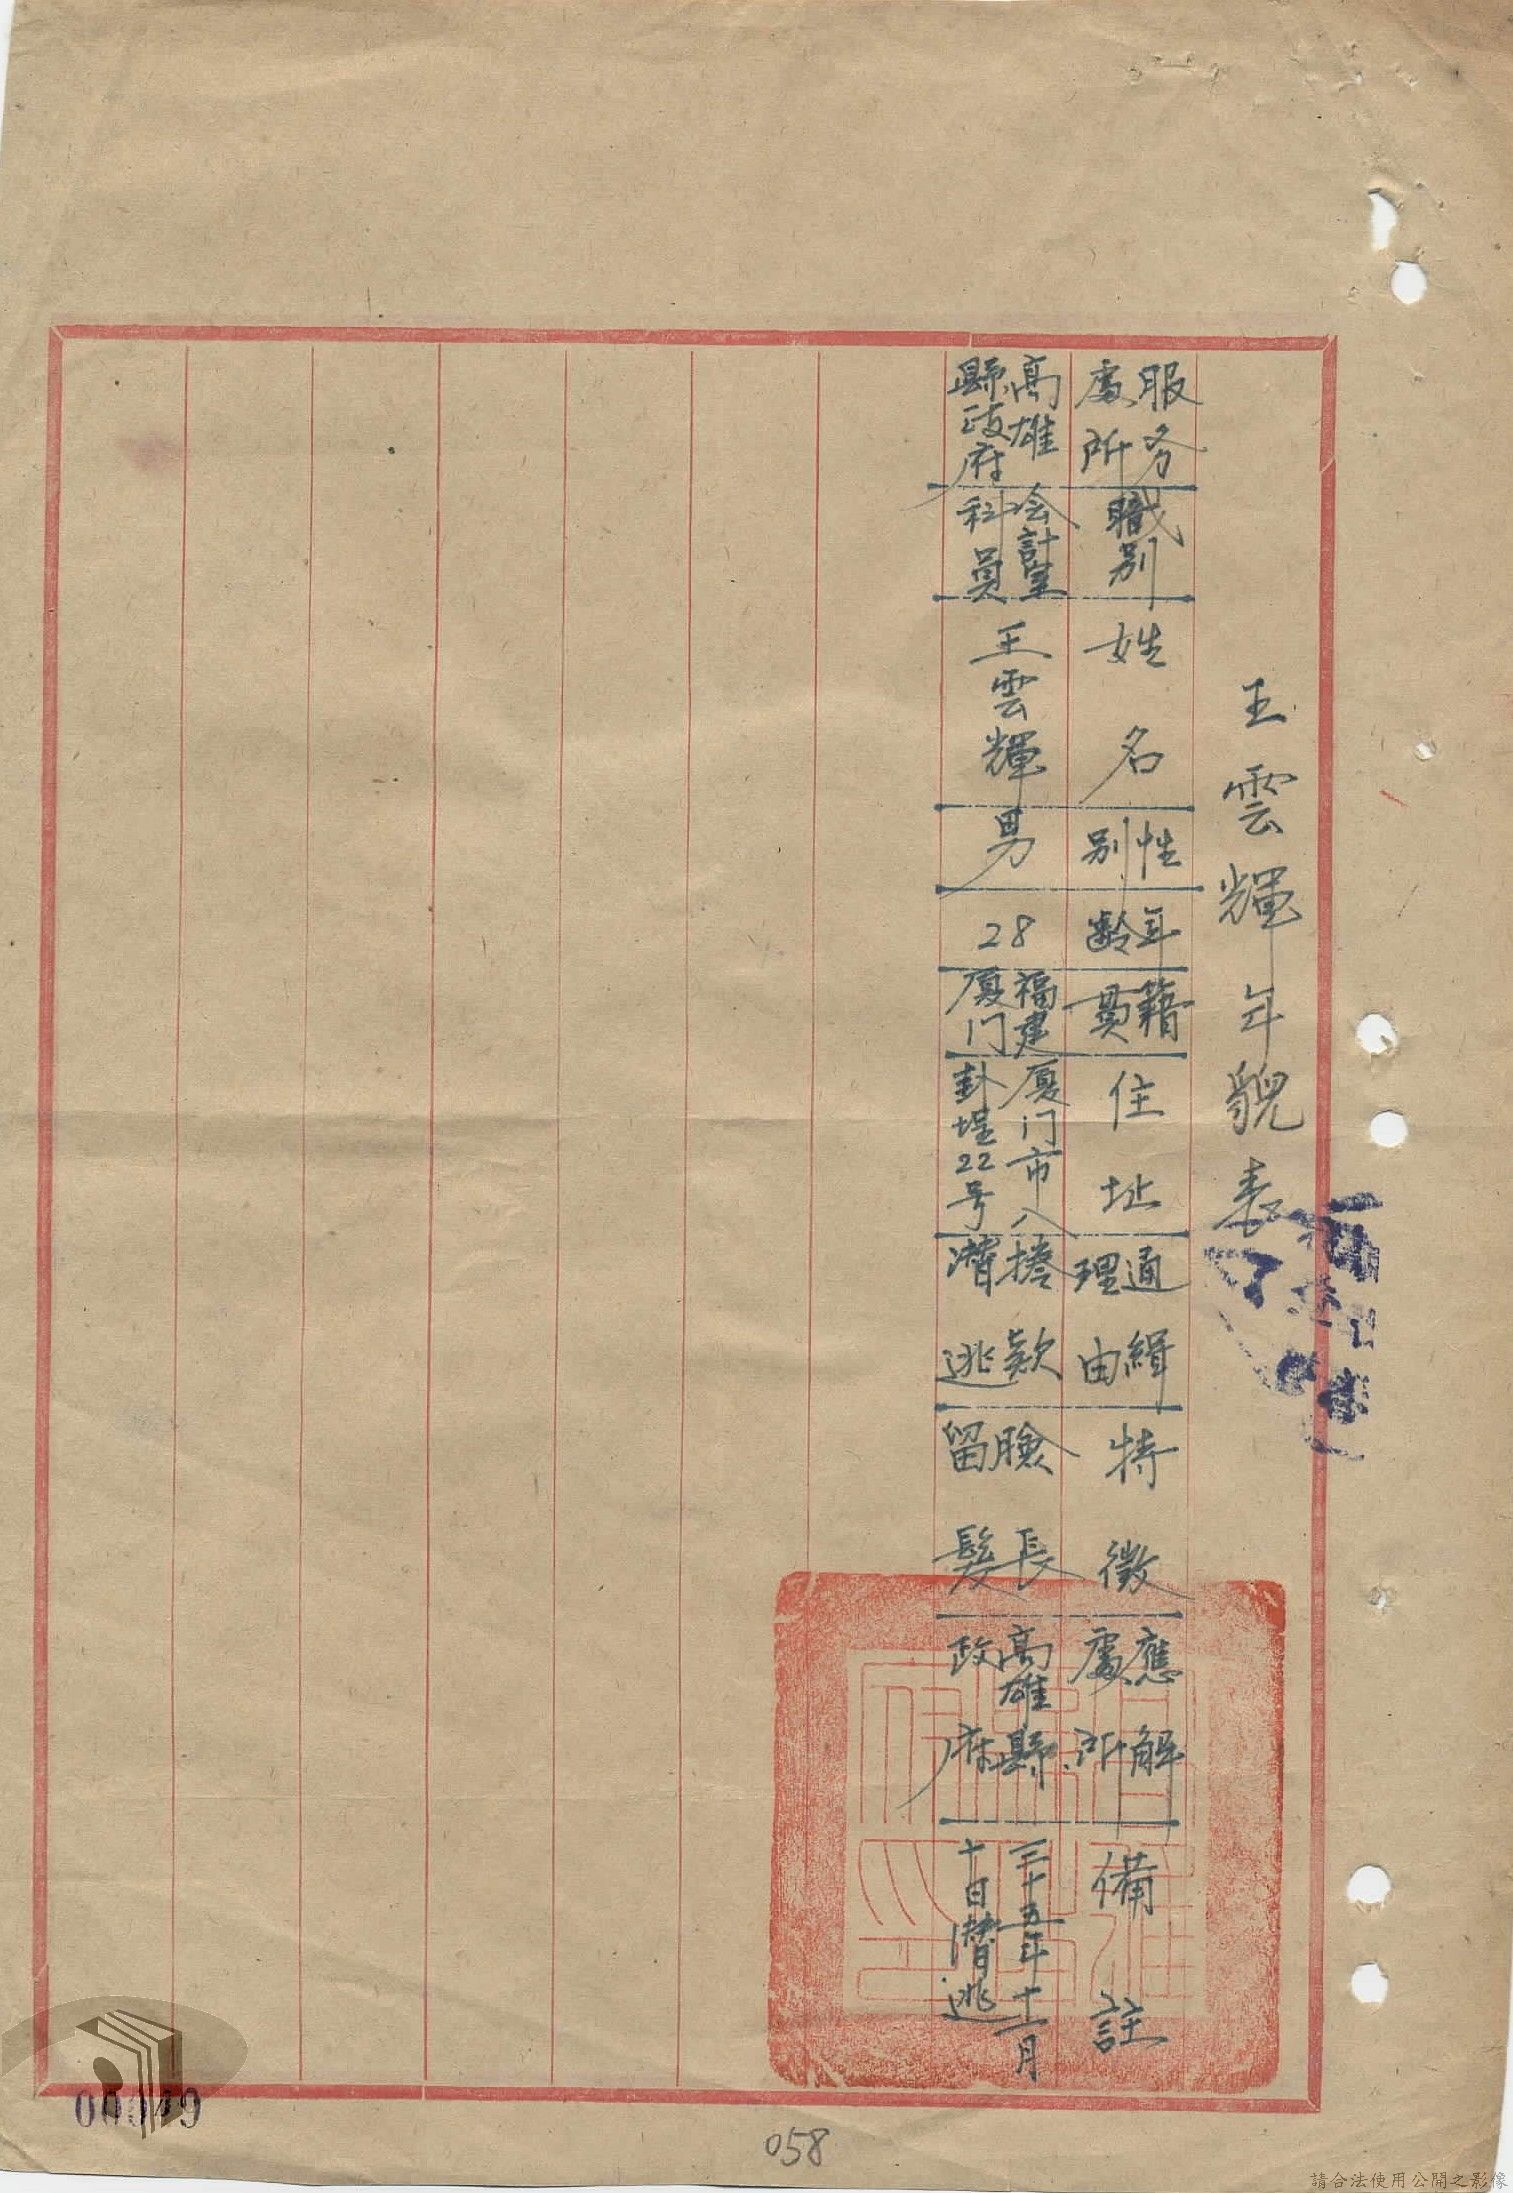 王雲輝年貌表
服务處所
職別
姓名
性別
年齡
籍貫
住址
通緝理由
特徵
應解處所
備註
高雄縣政府
会計室科員
王雲輝
男
28
福建厦门
厦门市八卦埕22号
捲款潛逃
臉長留髮
高雄縣政府
三十五年十二月十日潛逃
00049
058
請合法使用公開之影像